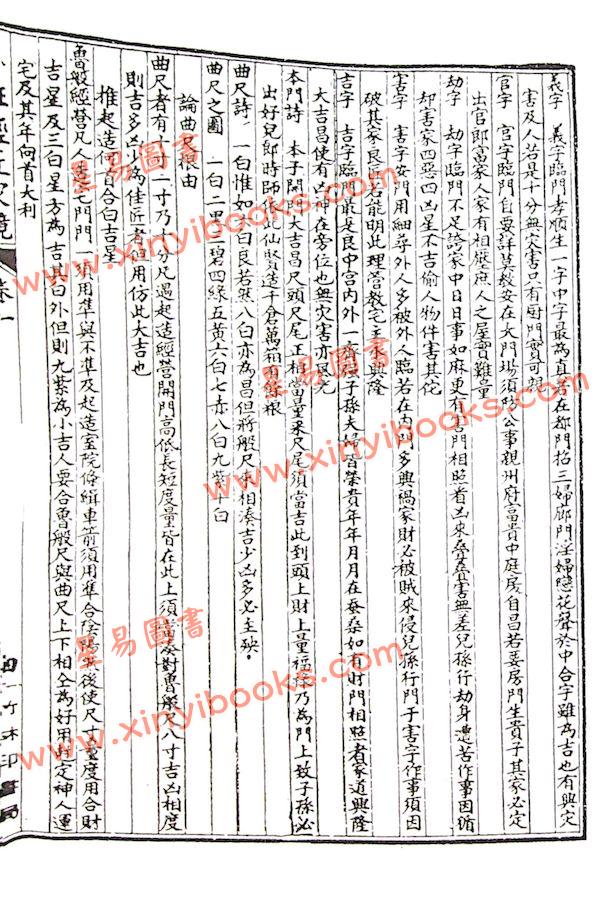 義字　義字臨門孝順生一字中字最為真若在都門招三婦廊門淫婦戀花聲於中合字雖為吉也有興災
害及人若是十分無災害只有厨門實可親
官字　官字臨門自要詳莫教安在大門場須防公事親州府富貴中庭房自昌若要房門生貴子其家必定
出官郎富家人家有相壓庶人之屋實難量
劫字　劫字臨門不足誇家中日日事如麻更有害門相照看凶來疊疊害無差兒孫行劫身遭苦作事因循
却害家四惡四凶星不吉偷人物件害其佗
害字　害字安門用細尋外人多被外人臨若在内門多興禍家財必被賊來侵兒孫行門于害字作事須因
破其家良匠若能明此理管教宅主永興隆
吉字　吉字臨門最是良中宮内外一齊強子孫夫婦皆榮貴年年月月在蚕桑如有財門相照者家道興隆
大吉昌使有凶神在旁位也無災害亦風光
本門詩　本子開門大吉昌尺頭尺尾正相當量來尺尾須當吉此到頭上財上量福祿乃為門上致子孫必
出好兒郎時師依此仙賢造千倉萬箱有餘粮
曲尺詩　一白惟如六白良若然八白亦為昌但將般尺來相湊吉少凶多必主殃
曲尺之圖　一白二黑三碧四綠五黃六白七赤八白九紫十白
論曲尺根由
曲尺者有十寸一寸乃十分尺遇起造經營開門高低長短度量皆在此上須當湊對魯般尺八寸吉凶相度
則吉多凶少為佳匠者但用仿此大吉也
推起造何首合白吉星
魯般經營凡人造宅門門一須用準與不準及起造室院條緝車箭須用準合陰陽然後使尺寸量度用合財
吉星及三白星方為吉其白外但則九紫為小吉人要合魯般尺與曲尺上下相仝為好用尅定神人運
宅及其年向首大利
卷一
竹木印書局
星易圖書
www.xinyibooks.com
星易圖書
www.xinyibooks.com
星易圖書
www.xinyibooks.com